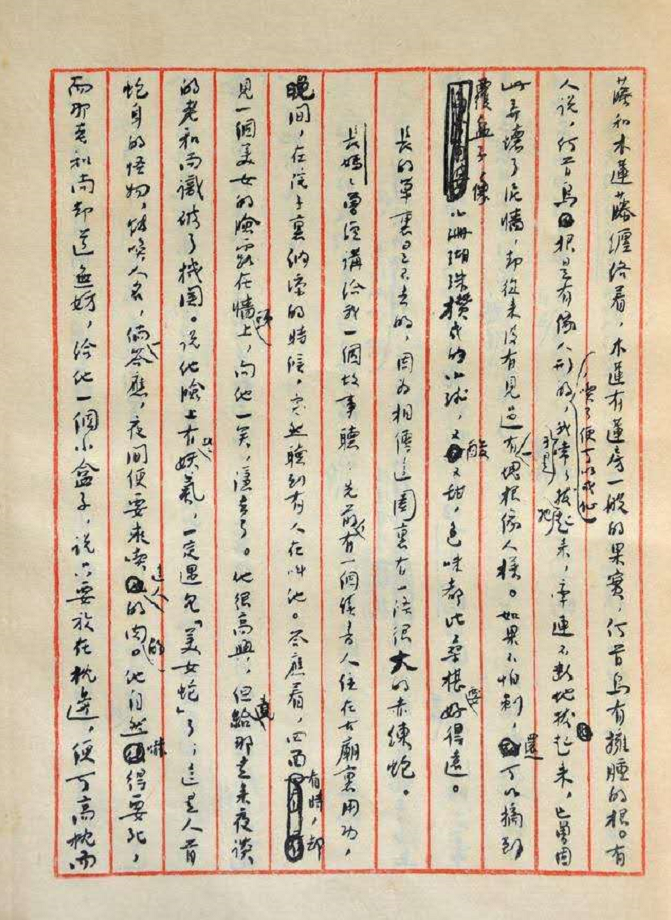 藤和木蓮藤纏絡着，木蓮有蓮房一般的果實，何首烏有擁腫的根。有
人說，何首烏根是有像人形的，喫了便可以成仙，我於是常々拔它起來，牽連不斷地拔起來，也曾因
此弄壞了泥牆，却從來沒有見過有一塊根像人樣。如果不怕刺，還可以摘到
覆盆子，像小珊瑚珠攢成的小球，又酸又甜，色味都比桑椹要好得遠。
長的草裏是不去的，因為相傳這園裏有一條很大的赤練蛇。
長媽々曾經講給我一個故事聽：先前，有一個讀書人住在古廟裏用功，
晚間，在院子裏納涼的時候，突然聽到有人在叫他。答應着，四面看時，却
見一個美女的臉露在牆頭上，向他一笑，隱去了。他很高興；但竟給那走來夜談
的老和尚識破了機關。說他臉上有些妖氣，一定遇見「美女蛇」了；這是人首
蛇身的怪物，能喚人名，倘一答應，夜間便要來喫這人的肉的。他自然嚇得要死，
而那老和尚却道無妨，給他一個小盒子，說只要放在枕邊，便可高枕而